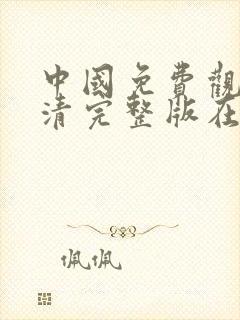 中國免費觀
清完整版在
佩佩